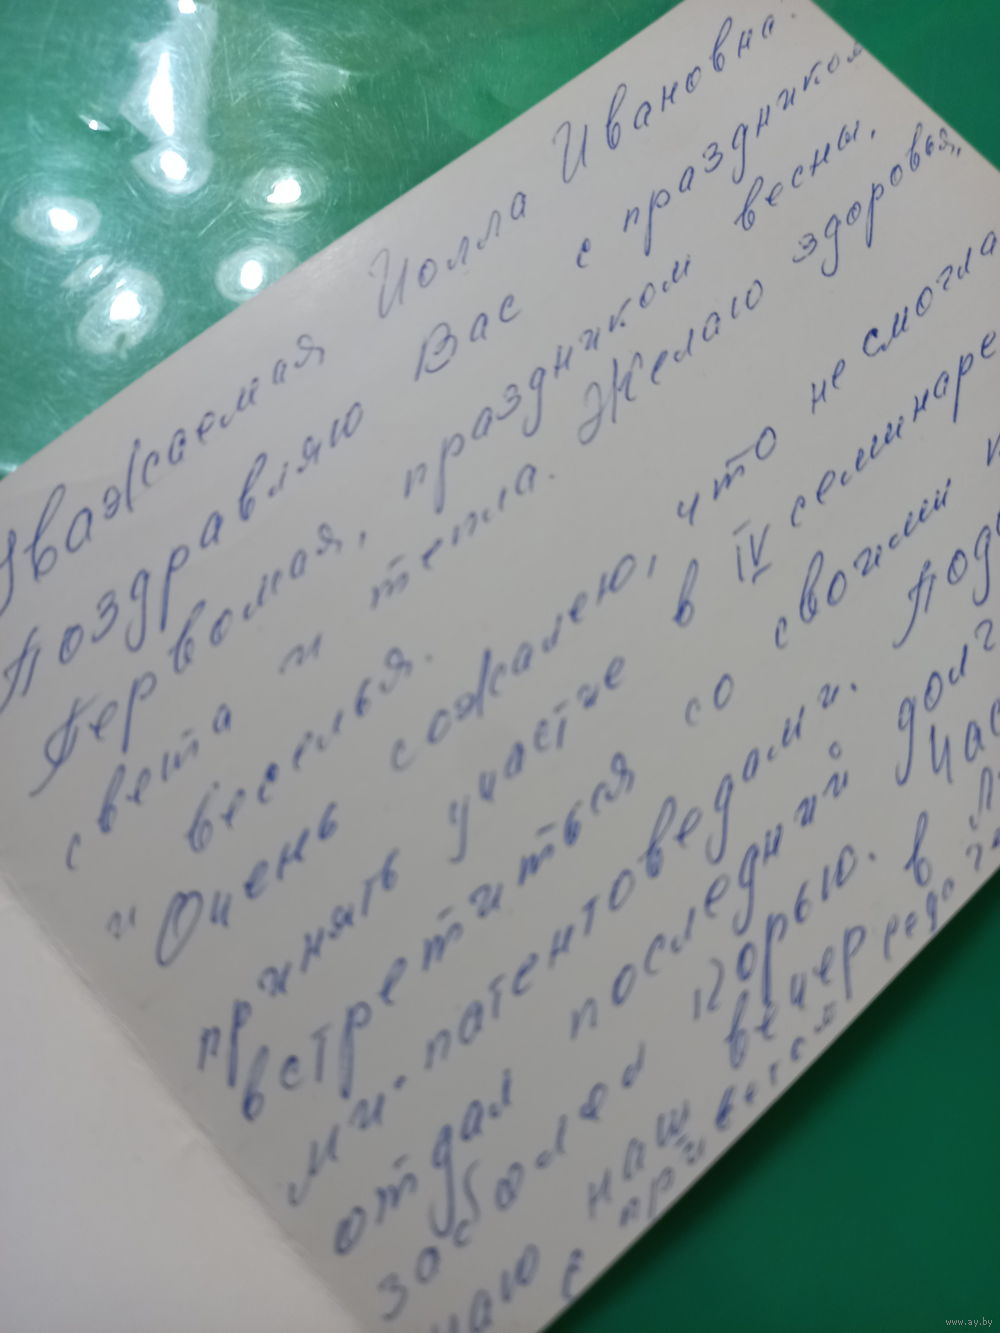 Уважаемая Иолла Ивановна.
Поздравляю Вас с праздником
Первомая, праздником весны,
света и тепла. Желаю здоровья,
и веселья.
Очень сожалею, что не смогла
принять участие в IV семинаре
встретиться со своими
ми. патентоведами.
отдал последний
заболел корью. в
наш вечер
с приветом
www.ay.by